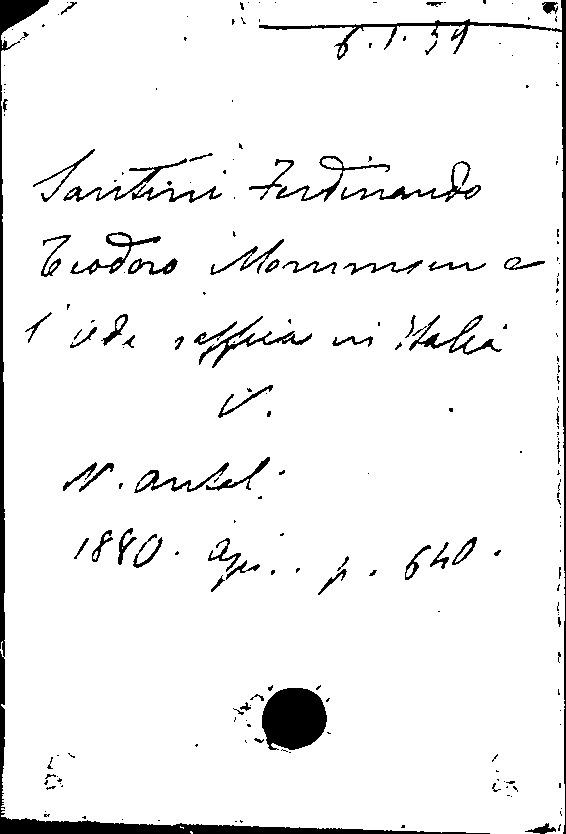 6.1.39
Santini Ferdinando
Teodoro Mommsen e
l'ode saffica in Italia
V.
N. antol.
1880. apr.. p. 640.